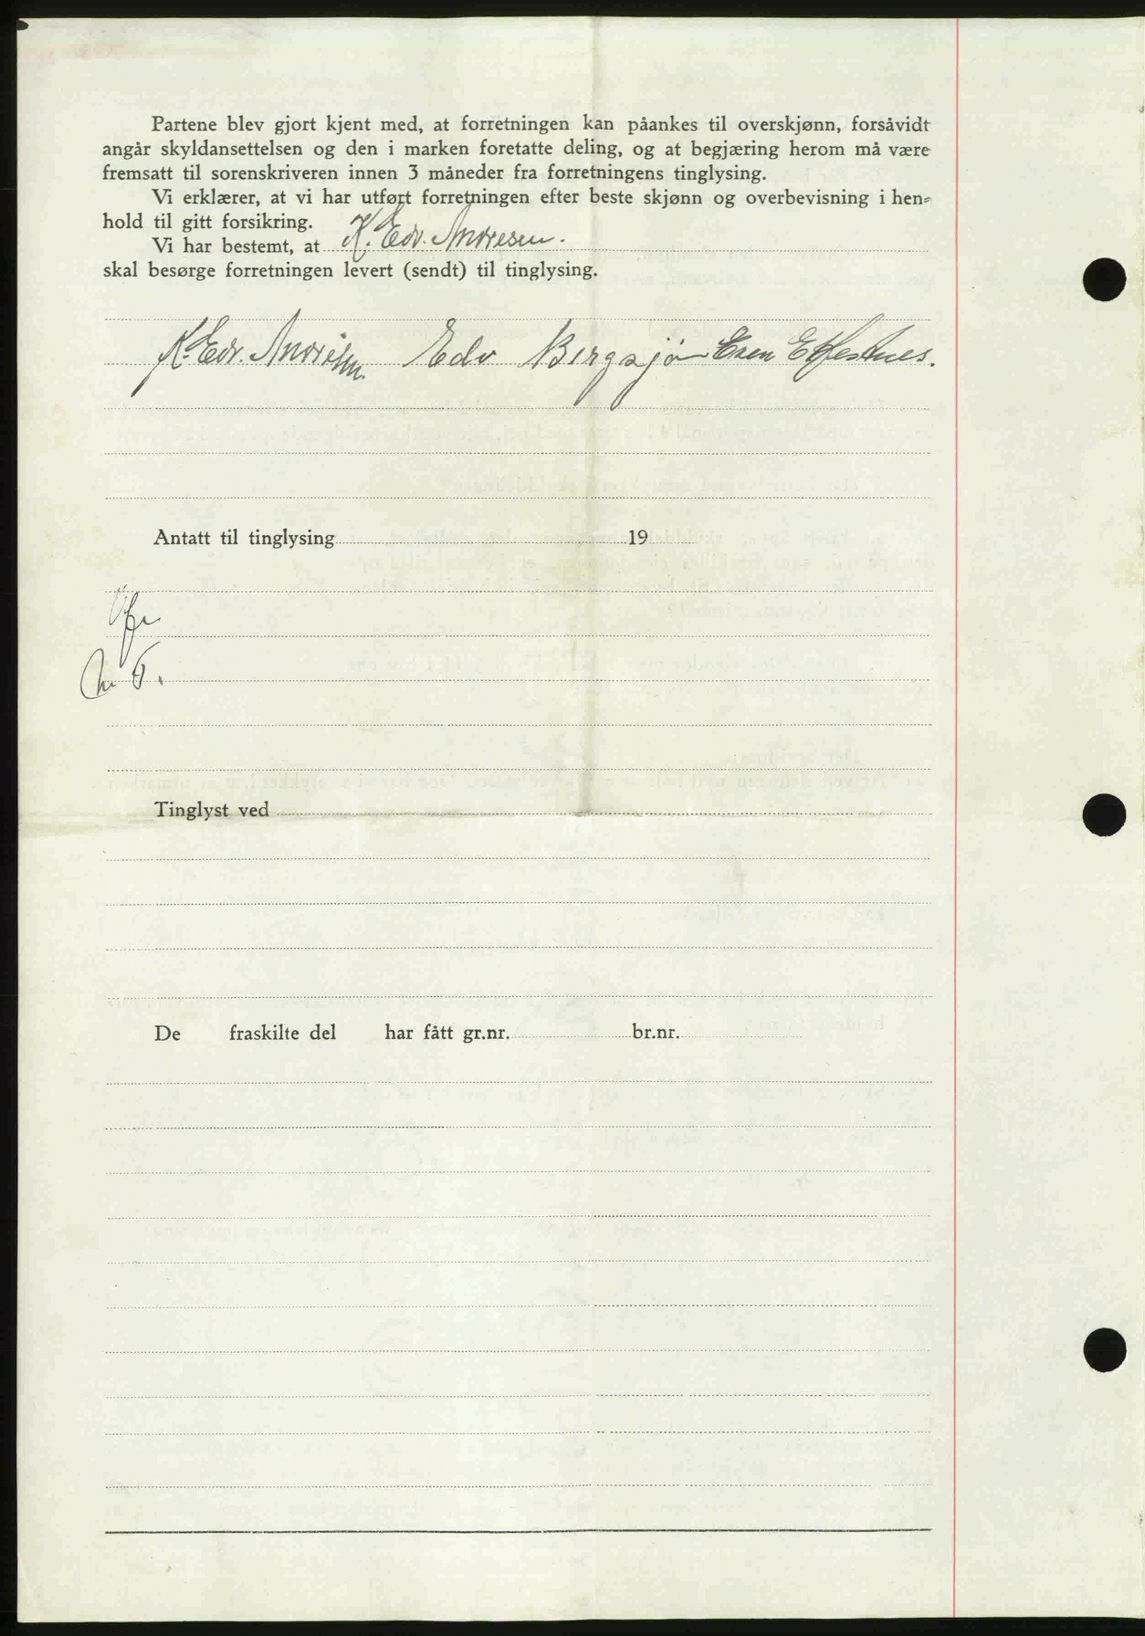 Partene blev gjort kjent med, at forretningen kan påankes til overskjønn, forsåvidt
angår skyldansettelsen og den i marken foretatte deling, og at begjæring herom må være
fremsatt til sorenskriveren innen 3 måneder fra forretningens tinglysing.
Vi erklærer, at vi har utført forretningen efter beste skjønn og overbevisning i hen-
hold til gitt forsikring.
Vi har bestemt, at K. Edv. Andresen.
skal besørge forretningen levert (sendt) til tinglysing.
K. Edv. Andresen Edv Bergsjø
Antatt til tinglysing 19
Tinglyst ved
De fraskilte del har fått gr.nr. br.nr.